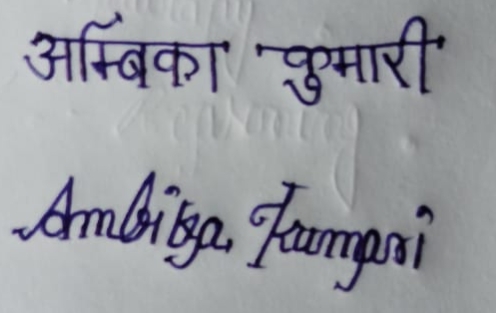 अम्बिका कुमारी
Ambika Kumari